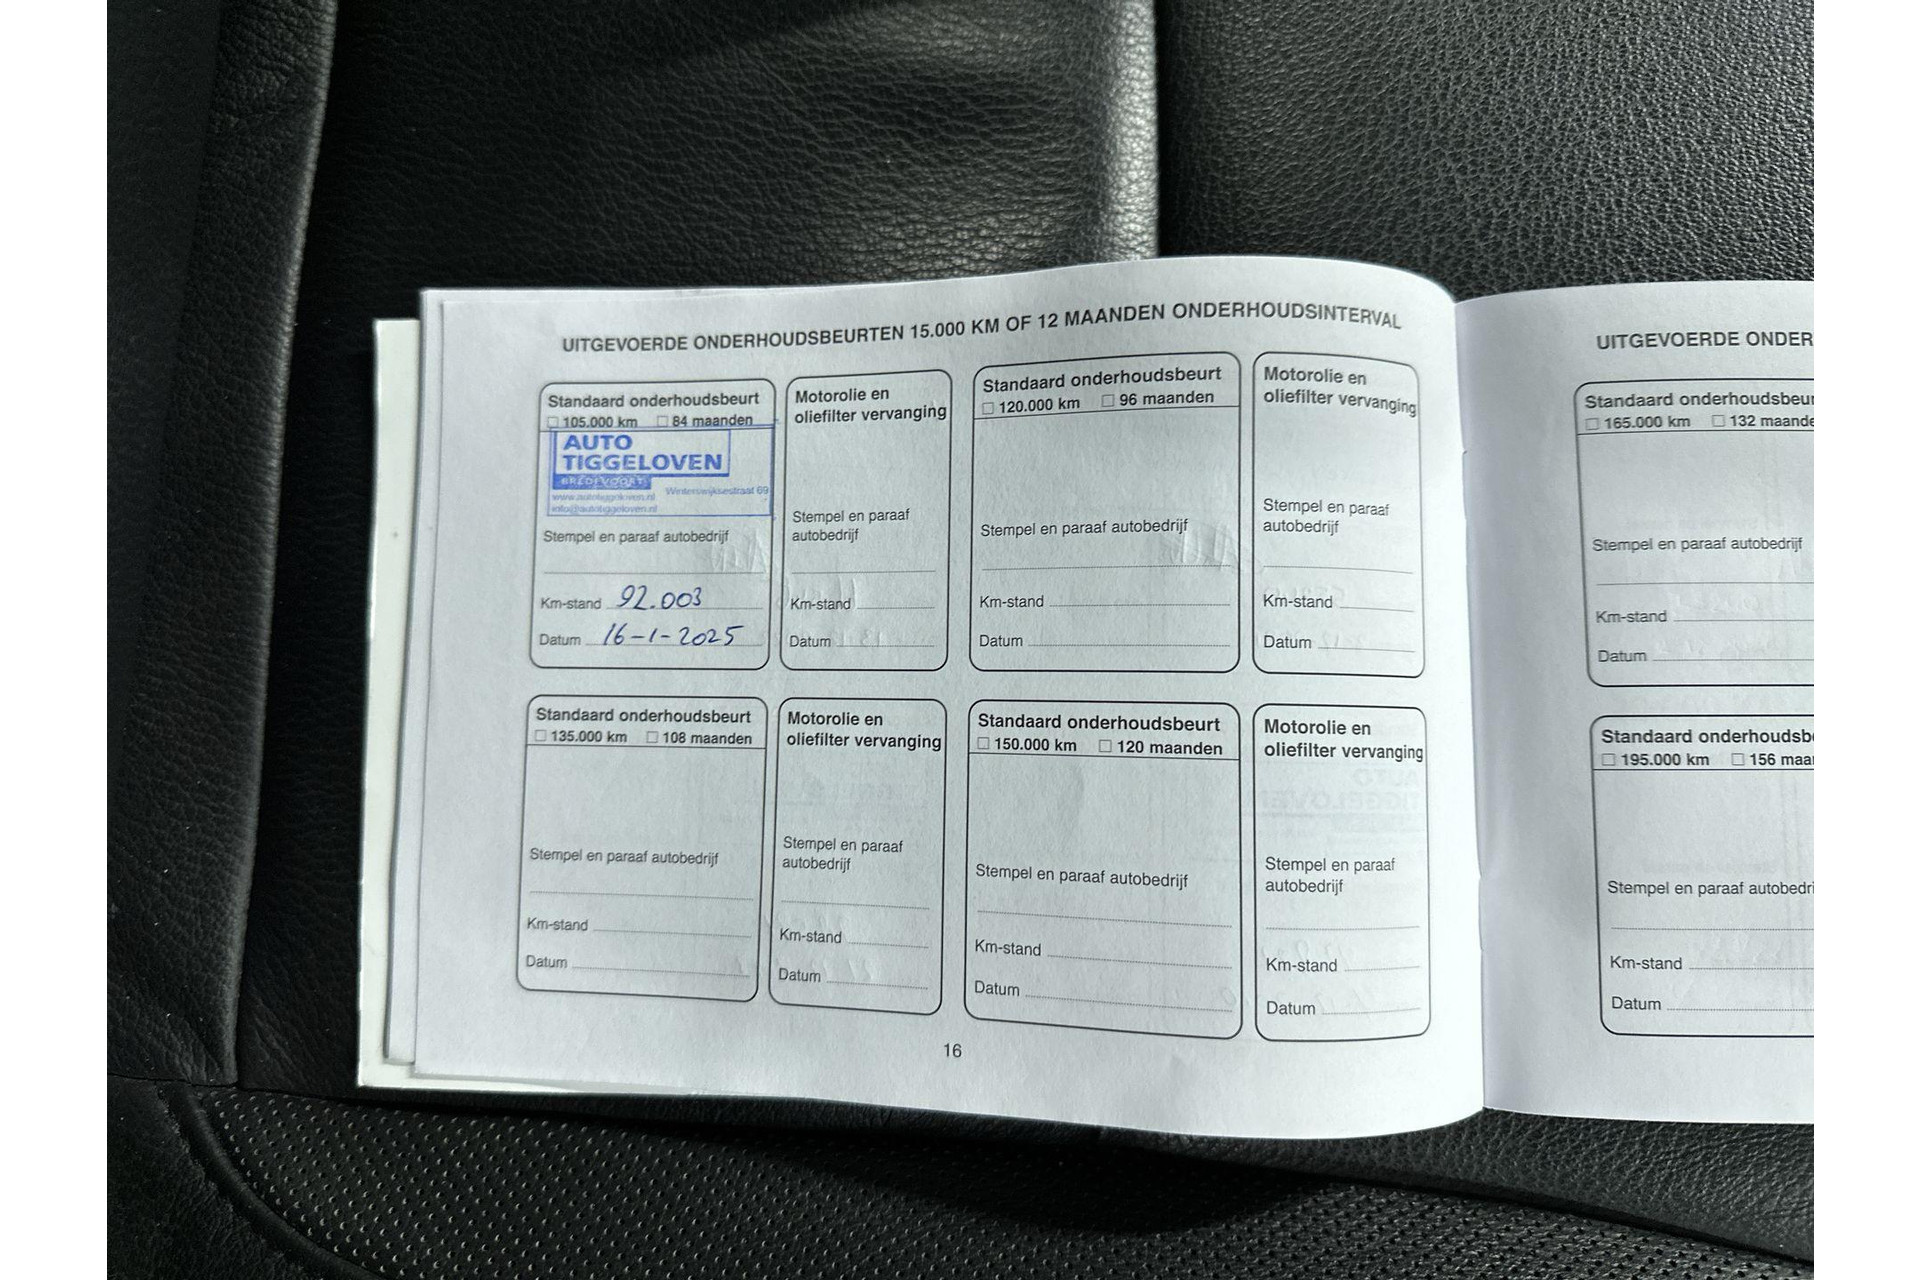 UITGEVOERDE ONDERHOUDSBEURTEN 15.000 KM OF 12 MAANDEN ONDERHOUDSINTERVAL
Standaard onderhoudsbeurt
105.000 km 84 maanden
AUTO
TIGGELOVEN
BREDEVOORT
www.autotiggeloven.nl Winterswijksestraat 69
info@autotiggeloven.nl
Stempel en paraaf autobedrijf
Km-stand 92.003
Datum 16-1-2025
Motorolie en
oliefilter vervanging
Stempel en paraaf
autobedrijf
Km-stand
Datum
Standaard onderhoudsbeurt
120.000 km 96 maanden
Stempel en paraaf autobedrijf
Km-stand
Datum
Motorolie en
oliefilter vervanging
Stempel en paraaf
autobedrijf
Km-stand
Datum
Standaard onderhoudsbeurt
135.000 km 108 maanden
Stempel en paraaf autobedrijf
Km-stand
Datum
Motorolie en
oliefilter vervanging
Stempel en paraaf
autobedrijf
Km-stand
Datum
Standaard onderhoudsbeurt
150.000 km 120 maanden
Stempel en paraaf autobedrijf
Km-stand
Datum
Motorolie en
oliefilter vervanging
Stempel en paraaf
autobedrijf
Km-stand
Datum
16
UITGEVOERDE ONDER
Standaard onderhoudsbeur
165.000 km 132 maande
Stempel en paraaf autobedrijf
Km-stand
Datum
Standaard onderhoudsb
195.000 km 156 maa
Stempel en paraaf autobedri
Km-stand
Datum